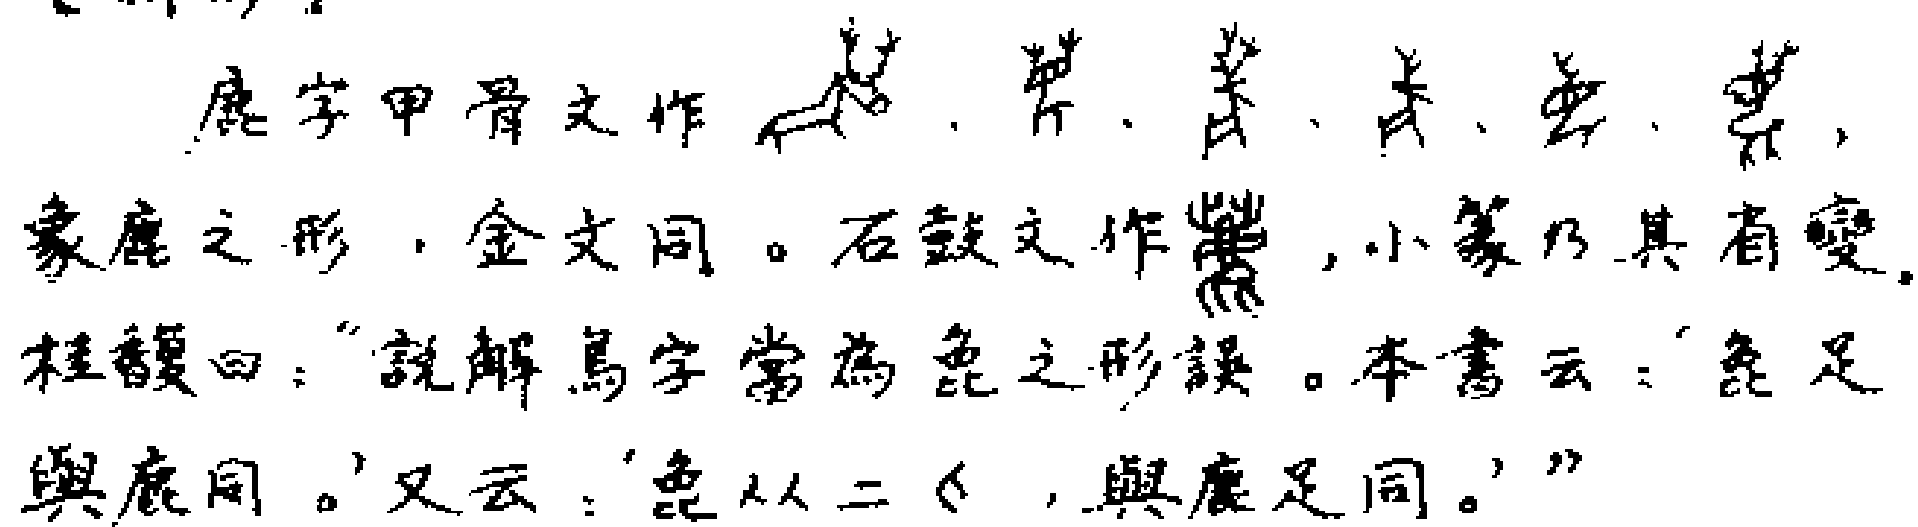 鹿字甲骨文作、、、、、,
象鹿之形,金文同。石鼓文作,小篆乃其省變。
桂馥曰:“說解鳥字當為㲋之形誤。本書云:‘㲋足
與鹿同。’又云:‘㲋从二匕,與鹿足同。’”